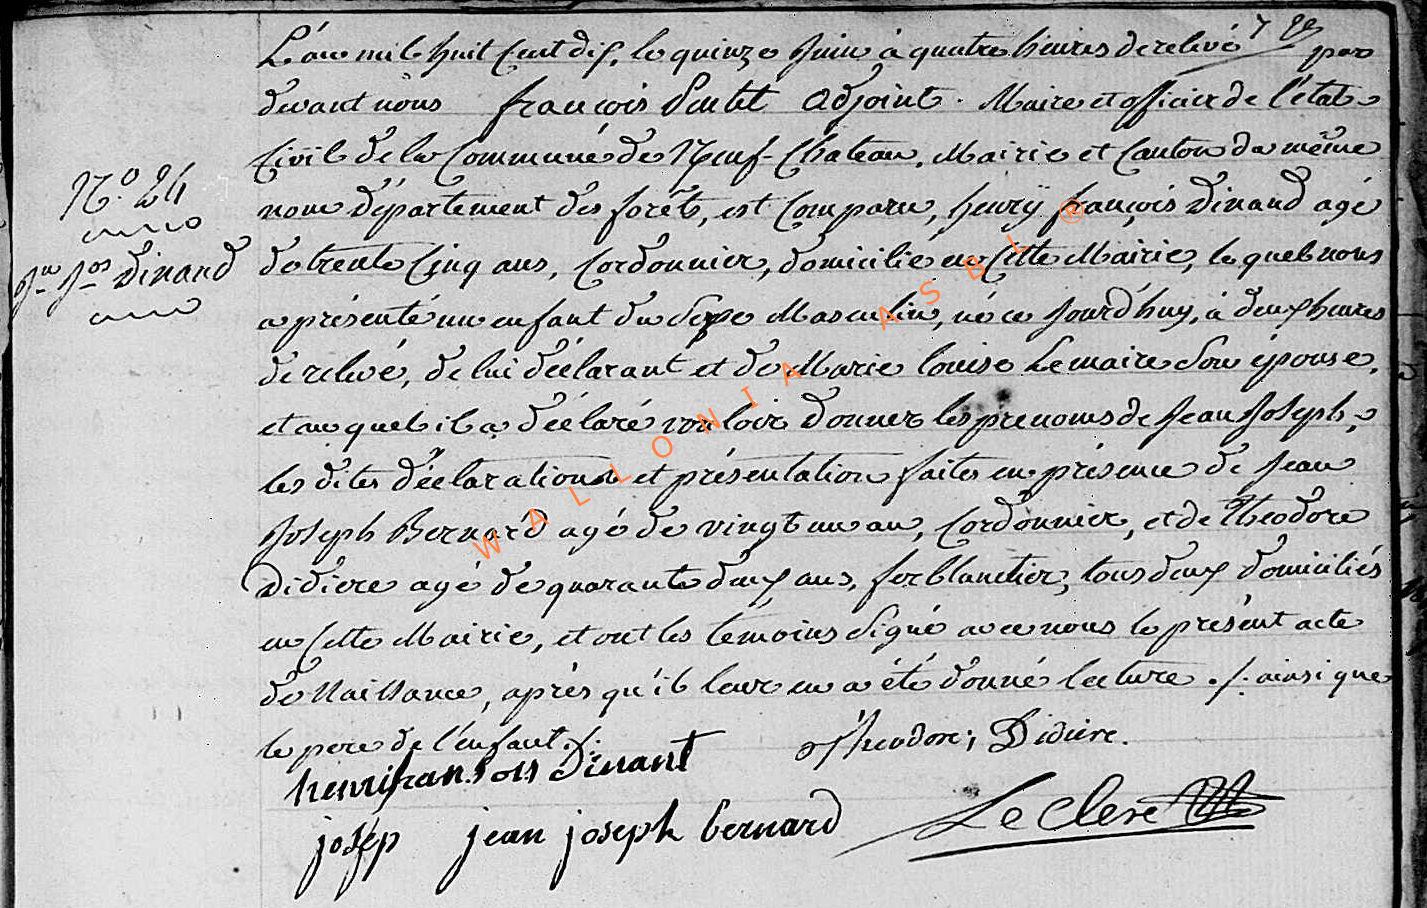 L'an mil huit Cent dix, le quinze Juin à quatre heures de relevé par
devant nous françois adjoint. Maire et officier de l'état
Civil de la Commune de Neuf-Château, Mairie et Canton du même
nom département des forêts, est Comparu, henry françois Dinand agé
de trente Cinq ans, Cordonnier, domicilié en Cette Mairie, lequel nous
N.° 24
Jn Jos Dinand
a présenté un enfant du Sexe Masculin, né ce Jourd'huy, à deux heures
de relevé, de lui déclarant et de Marie louise Lemaire Son épouse,
et auquel il a déclaré vouloir donner les prenoms de Jean Joseph,
les dites déclaration et présentation faites en présence de Jean
Joseph Bernard agé de vingt un an, Cordonnier, et de Theodore
Didiere agé de quarante deux ans, ferblantier, tous deux domiciliés
en Cette Mairie, et ont les témoins Signé avec nous le présent acte
de Naissance, après qu'il leur en a été donné lecture ./. ainsi que
le pere de l'enfant ./.
henri fransois dinant
Theodore Didiere.
josep jean joseph bernard
Le Clerc
WALLONIA ASBL ®